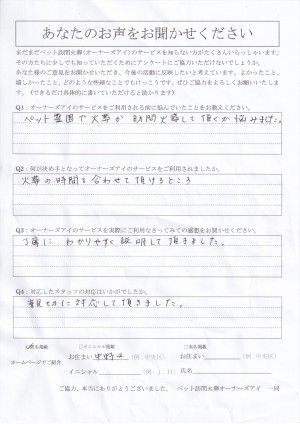 あなたのお声をお聞かせください
まだまだペット訪問火葬(オーナーズアイ)のサービスを知らない方がたくさんいらっしゃいます。
その方たちに少しでも知っていただくためにアンケートにご協力いただけないでしょうか。
あなた様のご意見をお聞かせいただき、今後の活動に反映したいと考えています。よかったこと、
嬉しかったこと、どのような些細なことでもけっこうです。ぜひご協力をよろしくお願いいたしま
す。(できるだけ具体的に書いていただけると助かります)
Q1：オーナーズアイのサービスをご利用される前に悩んでいたことをお教えください。
ペット霊園で火葬か訪問火葬して頂くか悩みました。
Q2：何が決め手となってオーナーズアイのサービスをご利用されましたか。
火葬の時間を合わせて頂けるところ
Q3：オーナーズアイのサービスを実際にご利用なさってみての感想をお聞かせください。
丁寧に わかりやすく説明して頂きました。
Q4：対応したスタッフの対応はいかがでしたか。
親切に対応して頂きました。
□イニシャル掲載 □実名掲載
ホームページでご紹介
お住まい 中野区 (例：中央区) お住まい (例：中央区)
イニシャル (例：J．H) 氏名
ご協力、本当にありがとうございました。 ペット訪問火葬オーナーズアイ 一同